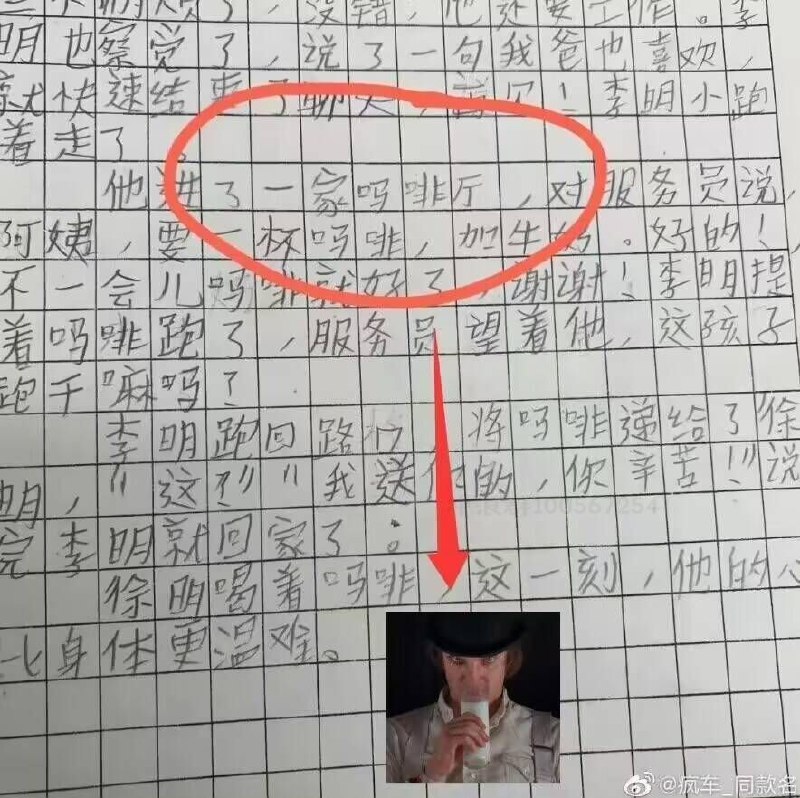 了，没错，他还要工作。李
明也察觉了，说了一句我爸也喜欢，
就快速结束了聊天，富欠！李明小跑
着走了。
他进了一家吗啡厅，对服务员说，
阿姨，要一杯吗啡，加牛奶。好的！
不一会儿吗啡就好了，谢谢！李明提
着吗啡跑了，服务员望着他，这孩子
跑干嘛吗？
李明跑回路口，将吗啡递给了徐
明，"这！""我送你的，你辛苦！"说
完李明就回家了。
徐明喝着吗啡，这一刻，他的心
比身体更温难。
@疯车_同款名